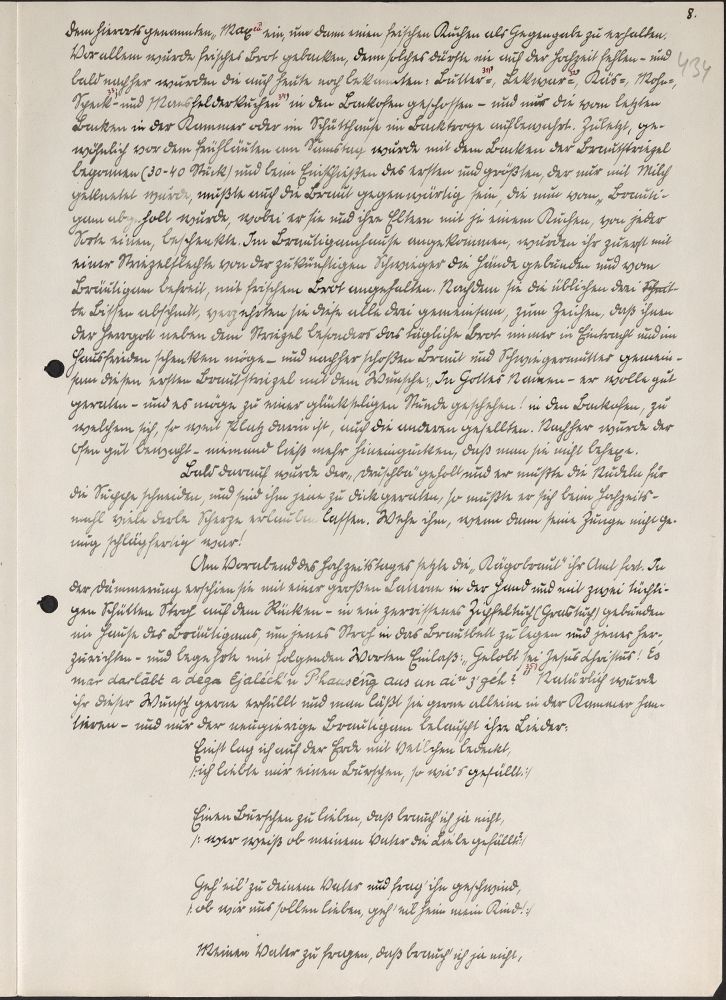 8.
434
dem hierorts genannten „Max“ ein, um dann einen frischen Kuchen als Gegengabe zu erhalten.
Vor allem wurde frisches Brot gebacken, denn solches dürfte nie auf der Hochzeit fehlen – und
bald nachher wurden die auch heute noch bekannten: Butter-, Lekwar-, Käs-, Mohn-,
Speck- und Mansfelderkuchen in den Backofen geschossen – und nur die vom letzten
Backen in der Kammer oder im Schütthause im Backtroge aufbewahrt. Zuletzt, ge-
wöhnlich vor dem Frühläuten am Samstag wurde mit dem Backen der Brautstriezel
begonnen (30-40 Stück) und beim Einschießen des ersten und größten, der nur mit Milch
geknetet wurde, mußte auch die Braut gegenwärtig sein, die nun vom Bräuti-
gam abgeholt wurde, wobei er sie und ihre Eltern mit je einem Kuchen, von jeder
Sorte einen, beschenkte. Im Bräutigamhause angekommen, wurden ihr zuerst mit
einer Striezelflechte von der zukünftigen Schwieger die Hände gebunden und vom
Bräutigam befreit, mit frischem Brot angehalten. Nachdem sie die üblichen drei
te Bissen abschnitt, verzehrten sie diese alle drei gemeinsam, zum Zeichen, daß ihnen
der Herrgott neben dem Striezel besonders das tägliche Brot immer in Eintracht und im
Hausfrieden schenken möge – und nachher schoßen Braut und Schwiegermutter gemein-
sam diesen ersten Brautstriezel mit dem Wunsche: „In Gottes Namen – er wolle gut
geraten – und es möge zu einer glückseligen Stunde geschehen! in den Backofen, zu
welchem sich, so weit Platz darin ist, auch die anderen gesellten. Nachher wurde der
Ofen gut bewacht – niemand ließ mehr hineingucken, daß man sie nicht behexe.
Bald darauf wurde der „Druschba“ geholt und er mußte die Nudeln für
die Suppe schneiden, und sind ihm jene zu dick geraten, so mußte er sich beim Hochzeits-
mahl viele derbe Scherze erlauben lassen. Wehe ihm, wenn dann seine Zunge nicht ge-
nug schlagfertig war!
Am Vorabend des Hochzeitstages setzte die ihr Amt fort. In
der Dämmerung erschien sie mit einer großen Laterne in der Hand und mit zwei tüchti-
gen Schütten Stroh auf dem Rücken – in ein zerrissenes Zipfeltuch (Grastuch) gebunden
im Hause des Bräutigams, um jenes Stroh in das Brautbett zu legen und jenes her-
zurichten – und begehrte mit folgenden Worten Einlaß: „Gelobt sei Jesus Christus! Es
mer darläbt a dega Ejaleck'n Phauseng aus an ai'n z'geh?“ Natürlich wurde
ihr dieser Wunsch gerne erfüllt und man läßt sie gerne alleine in der Kammer han-
tieren – und nur der neugierige Bräutigam belauscht ihre Lieder:
Einst lag ich auf der Erde mit Veilchen bedeckt,
/:ich liebte mir einen Burschen, so wie's gefällt:/
Einen Burschen zu lieben, daß brauch' ich ja nicht,
/: wer weiß ob meinem Vater die Liebe gefällt?:/
Geh' eil' zu deinem Vater und frag' ihn geschwind,
/:ob wir uns sollen lieben, geh' eil heim mein Kind!:/
Meinen Vater zu fragen, daß brauch' ich ja nicht,